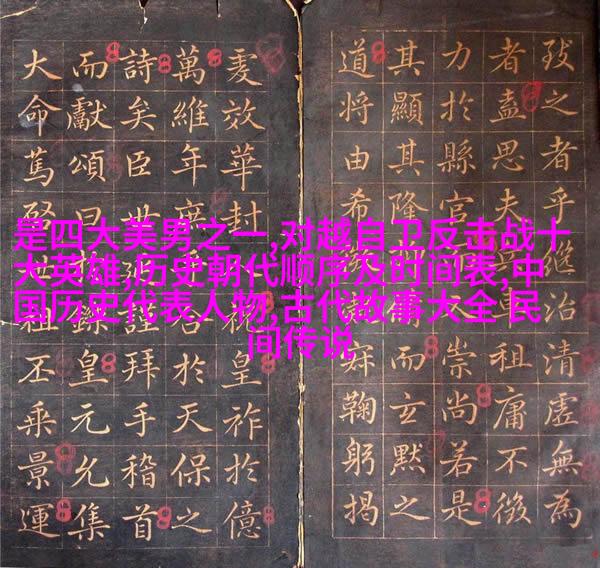 是四大美男之一,对越自卫反击战十
大英雄,历史朝代顺序及时间表,中
国历史代表人物,古代故事大全 民
间传说
之者乎治清虛無為
者盍思夫祖庸不徵
力於縣宮崇尚若是
其顯其隆而玄默之
道將由希鞠躬揭
效華封祝皇祚於億
萬維年於天保之
詩矣臣世謹拜手稽首
而獻頌曰皇元允集
大命篤啓祖丕乘景運